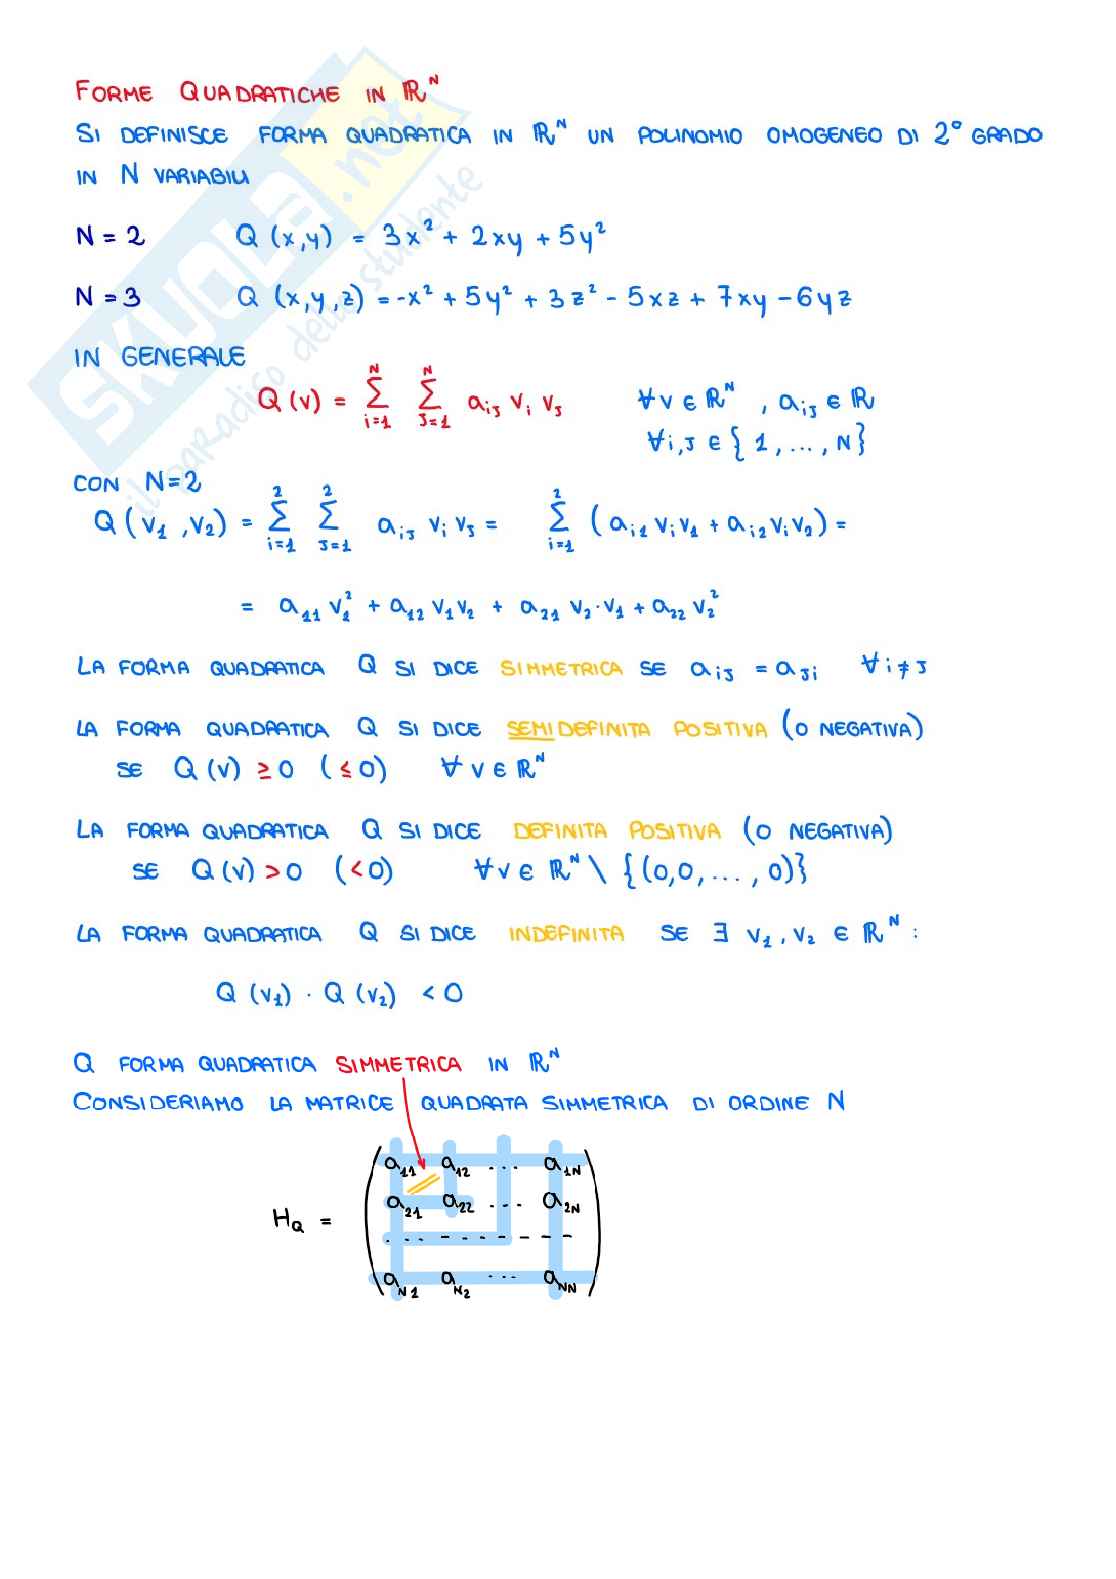 FORME QUADRATICHE IN ℝᴺ
SI DEFINISCE FORMA QUADRATICA IN ℝᴺ UN POLINOMIO OMOGENEO DI 2° GRADO
IN N VARIABILI
N = 2 Q (x,y) = 3x² + 2xy + 5y²
N = 3 Q (x,y,z) = -x² + 5y² + 3z² - 5xz + 7xy - 6yz
IN GENERALE
Q(v) = Σ_{i=1}^{N} Σ_{J=1}^{N} a_{iJ} v_i v_J ∀ v ∈ ℝᴺ , a_{iJ} ∈ ℝ
∀ i,J ∈ { 1, ..., N}
CON N=2
Q(v₁,v₂) = Σ_{i=1}^{2} Σ_{J=1}^{2} a_{iJ} v_i v_J = Σ_{i=1}^{2} (a_{i1} v_i v₁ + a_{i2} v_i v₂) =
= a₁₁ v₁² + a₁₂ v₁v₂ + a₂₁ v₂·v₁ + a₂₂ v₂²
LA FORMA QUADRATICA Q SI DICE SIMMETRICA SE a_{iJ} = a_{Ji} ∀ i ≠ J
LA FORMA QUADRATICA Q SI DICE SEMIDEFINITA POSITIVA (O NEGATIVA)
SE Q(v) ≥ 0 (≤ 0) ∀ v ∈ ℝᴺ
LA FORMA QUADRATICA Q SI DICE DEFINITA POSITIVA (O NEGATIVA)
SE Q(v) > 0 (< 0) ∀ v ∈ ℝᴺ \ {(0,0,...,0)}
LA FORMA QUADRATICA Q SI DICE INDEFINITA SE ∃ v₁, v₂ ∈ ℝᴺ :
Q (v₁) · Q (v₂) < 0
Q FORMA QUADRATICA SIMMETRICA IN ℝᴺ
CONSIDERIAMO LA MATRICE QUADRATA SIMMETRICA DI ORDINE N
a₁₁ a₁₂ ... a_{1N}
a₂₁ a₂₂ ... a_{2N}
H_Q = ... - - - - - - -
a_{N1} a_{N2} ... a_{NN}
SKUOLA.net
il paradiso dello studente